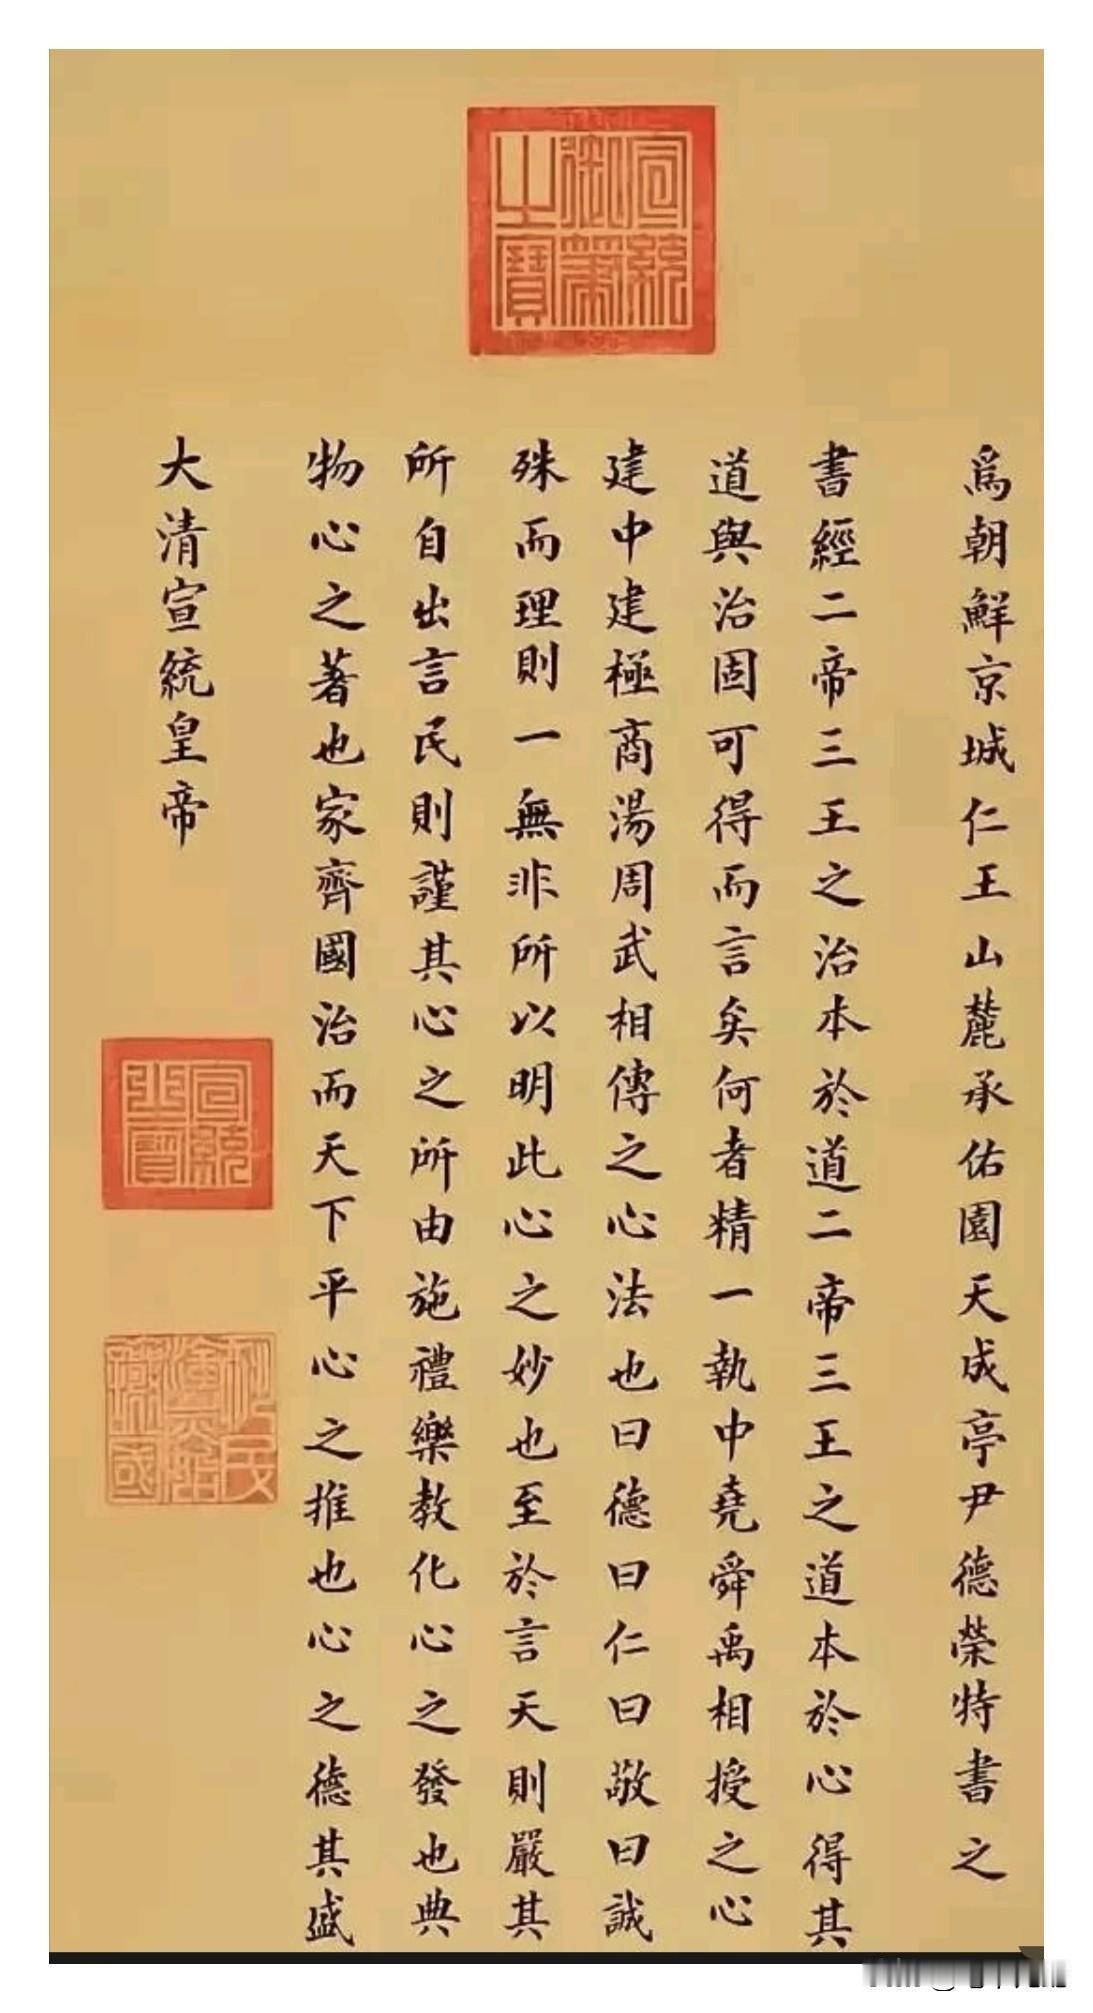 宣統御筆之寶
爲朝鮮京城仁王山麓承佑園天成亭尹德榮特書之
書經二帝三王之治本於道二帝三王之道本於心得其
道與治固可得而言矣何者精一執中堯舜禹相授之心
建中建極商湯周武相傳之心法也曰德曰仁曰敬曰誠
殊而理則一無非所以明此心之妙也至於言天則嚴其
所自出言民則謹其心之所由施禮樂教化心之發也典
物心之著也家齊國治而天下平心之推也心之德其盛
大清宣統皇帝